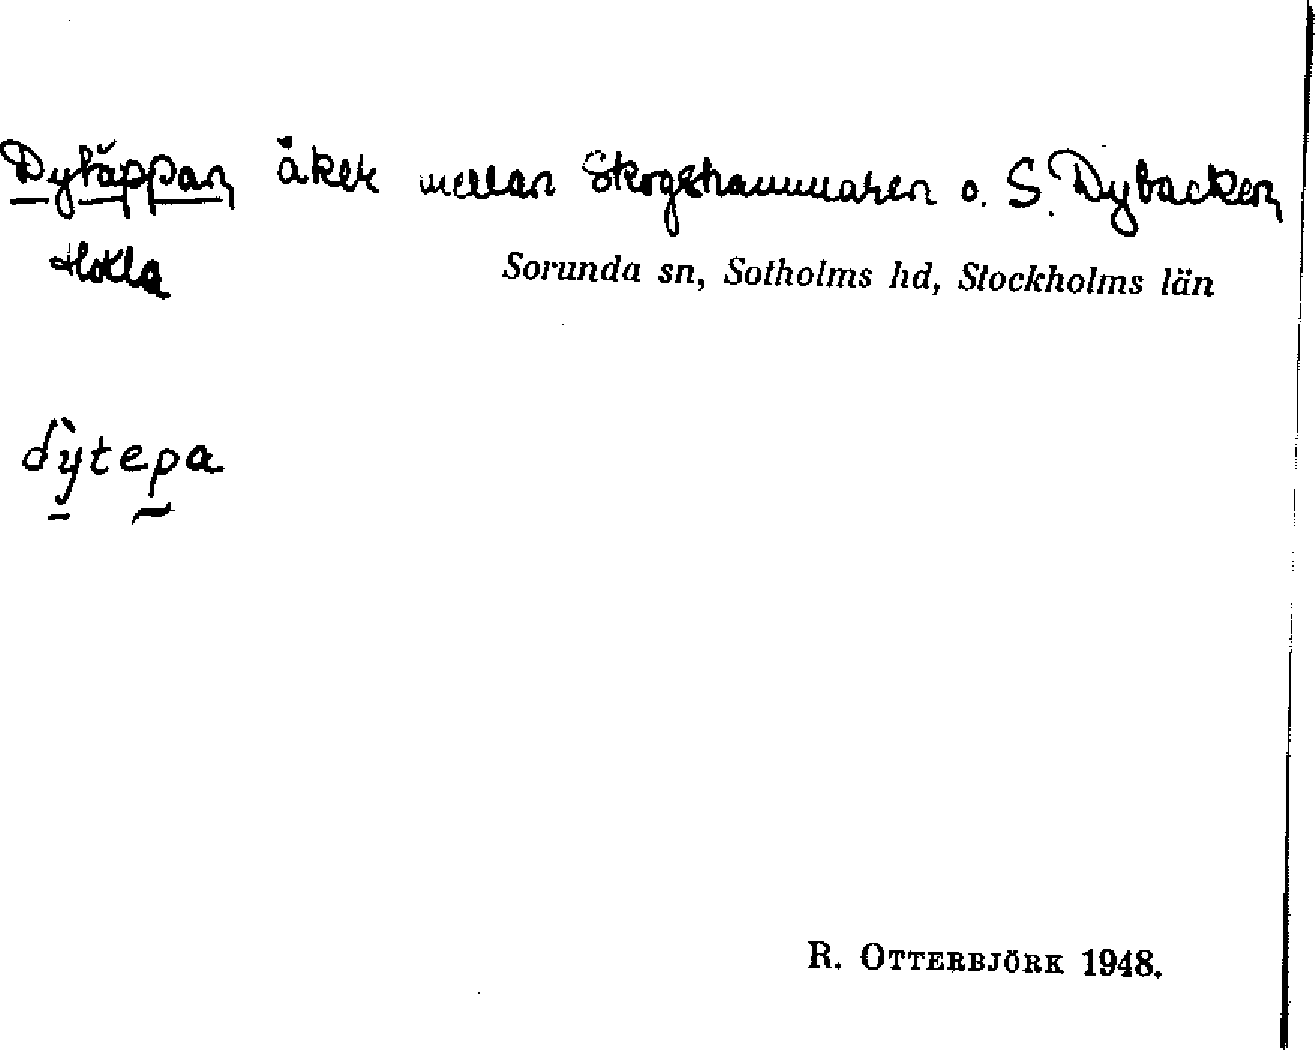 Dytäppan åker mellan Skogshammaren o. S. Dybacken
Sorunda sn, Sotholms hd, Stockholms län
dỳtepa
R. OTTERBJÖRK 1948.